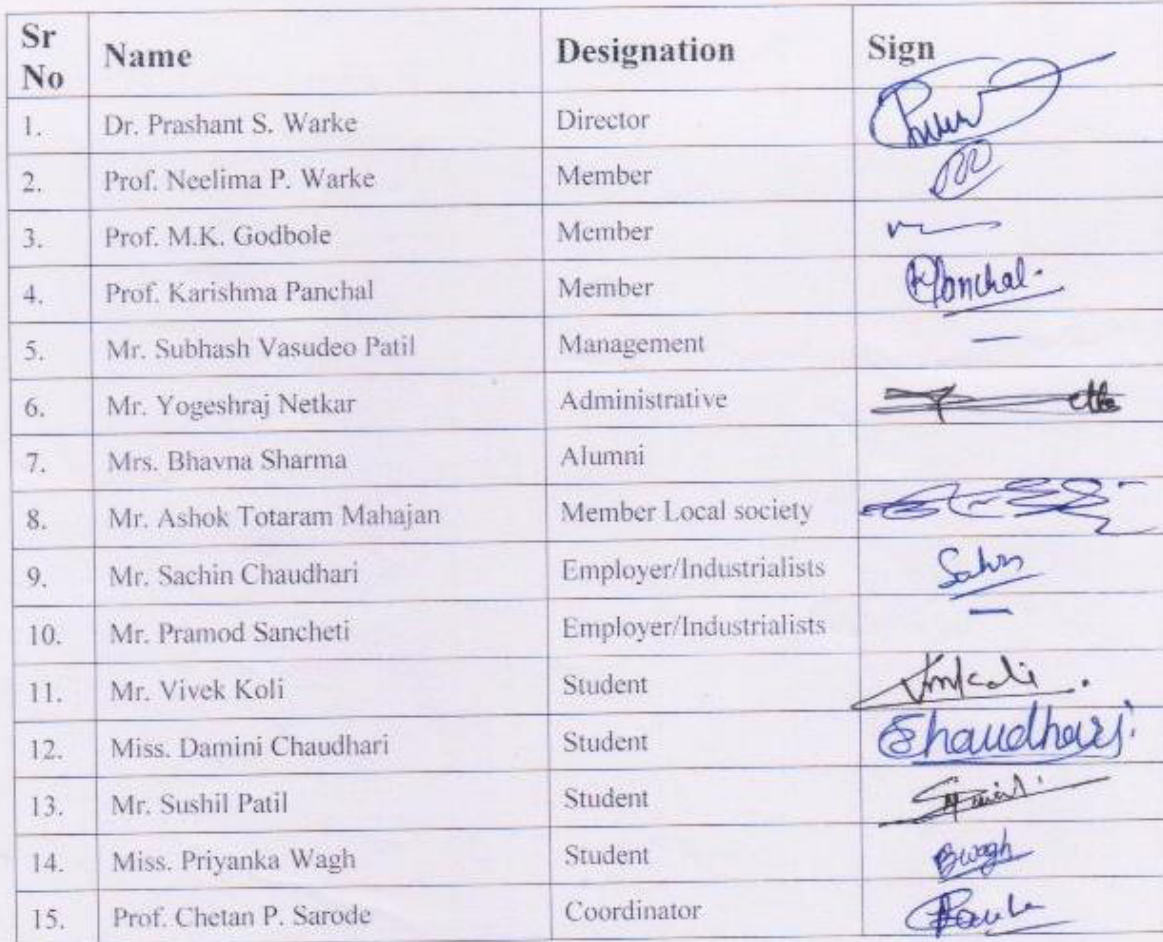 Sr No Name Designation Sign
1. Dr. Prashant S. Warke Director
2. Prof. Neelima P. Warke Member
3. Prof. M.K. Godbole Member
4. Prof. Karishma Panchal Member Panchal.
5. Mr. Subhash Vasudeo Patil Management —
6. Mr. Yogeshraj Netkar Administrative
7. Mrs. Bhavna Sharma Alumni
8. Mr. Ashok Totaram Mahajan Member Local society
9. Mr. Sachin Chaudhari Employer/Industrialists
10. Mr. Pramod Sancheti Employer/Industrialists —
11. Mr. Vivek Koli Student
12. Miss. Damini Chaudhari Student
13. Mr. Sushil Patil Student
14. Miss. Priyanka Wagh Student
15. Prof. Chetan P. Sarode Coordinator